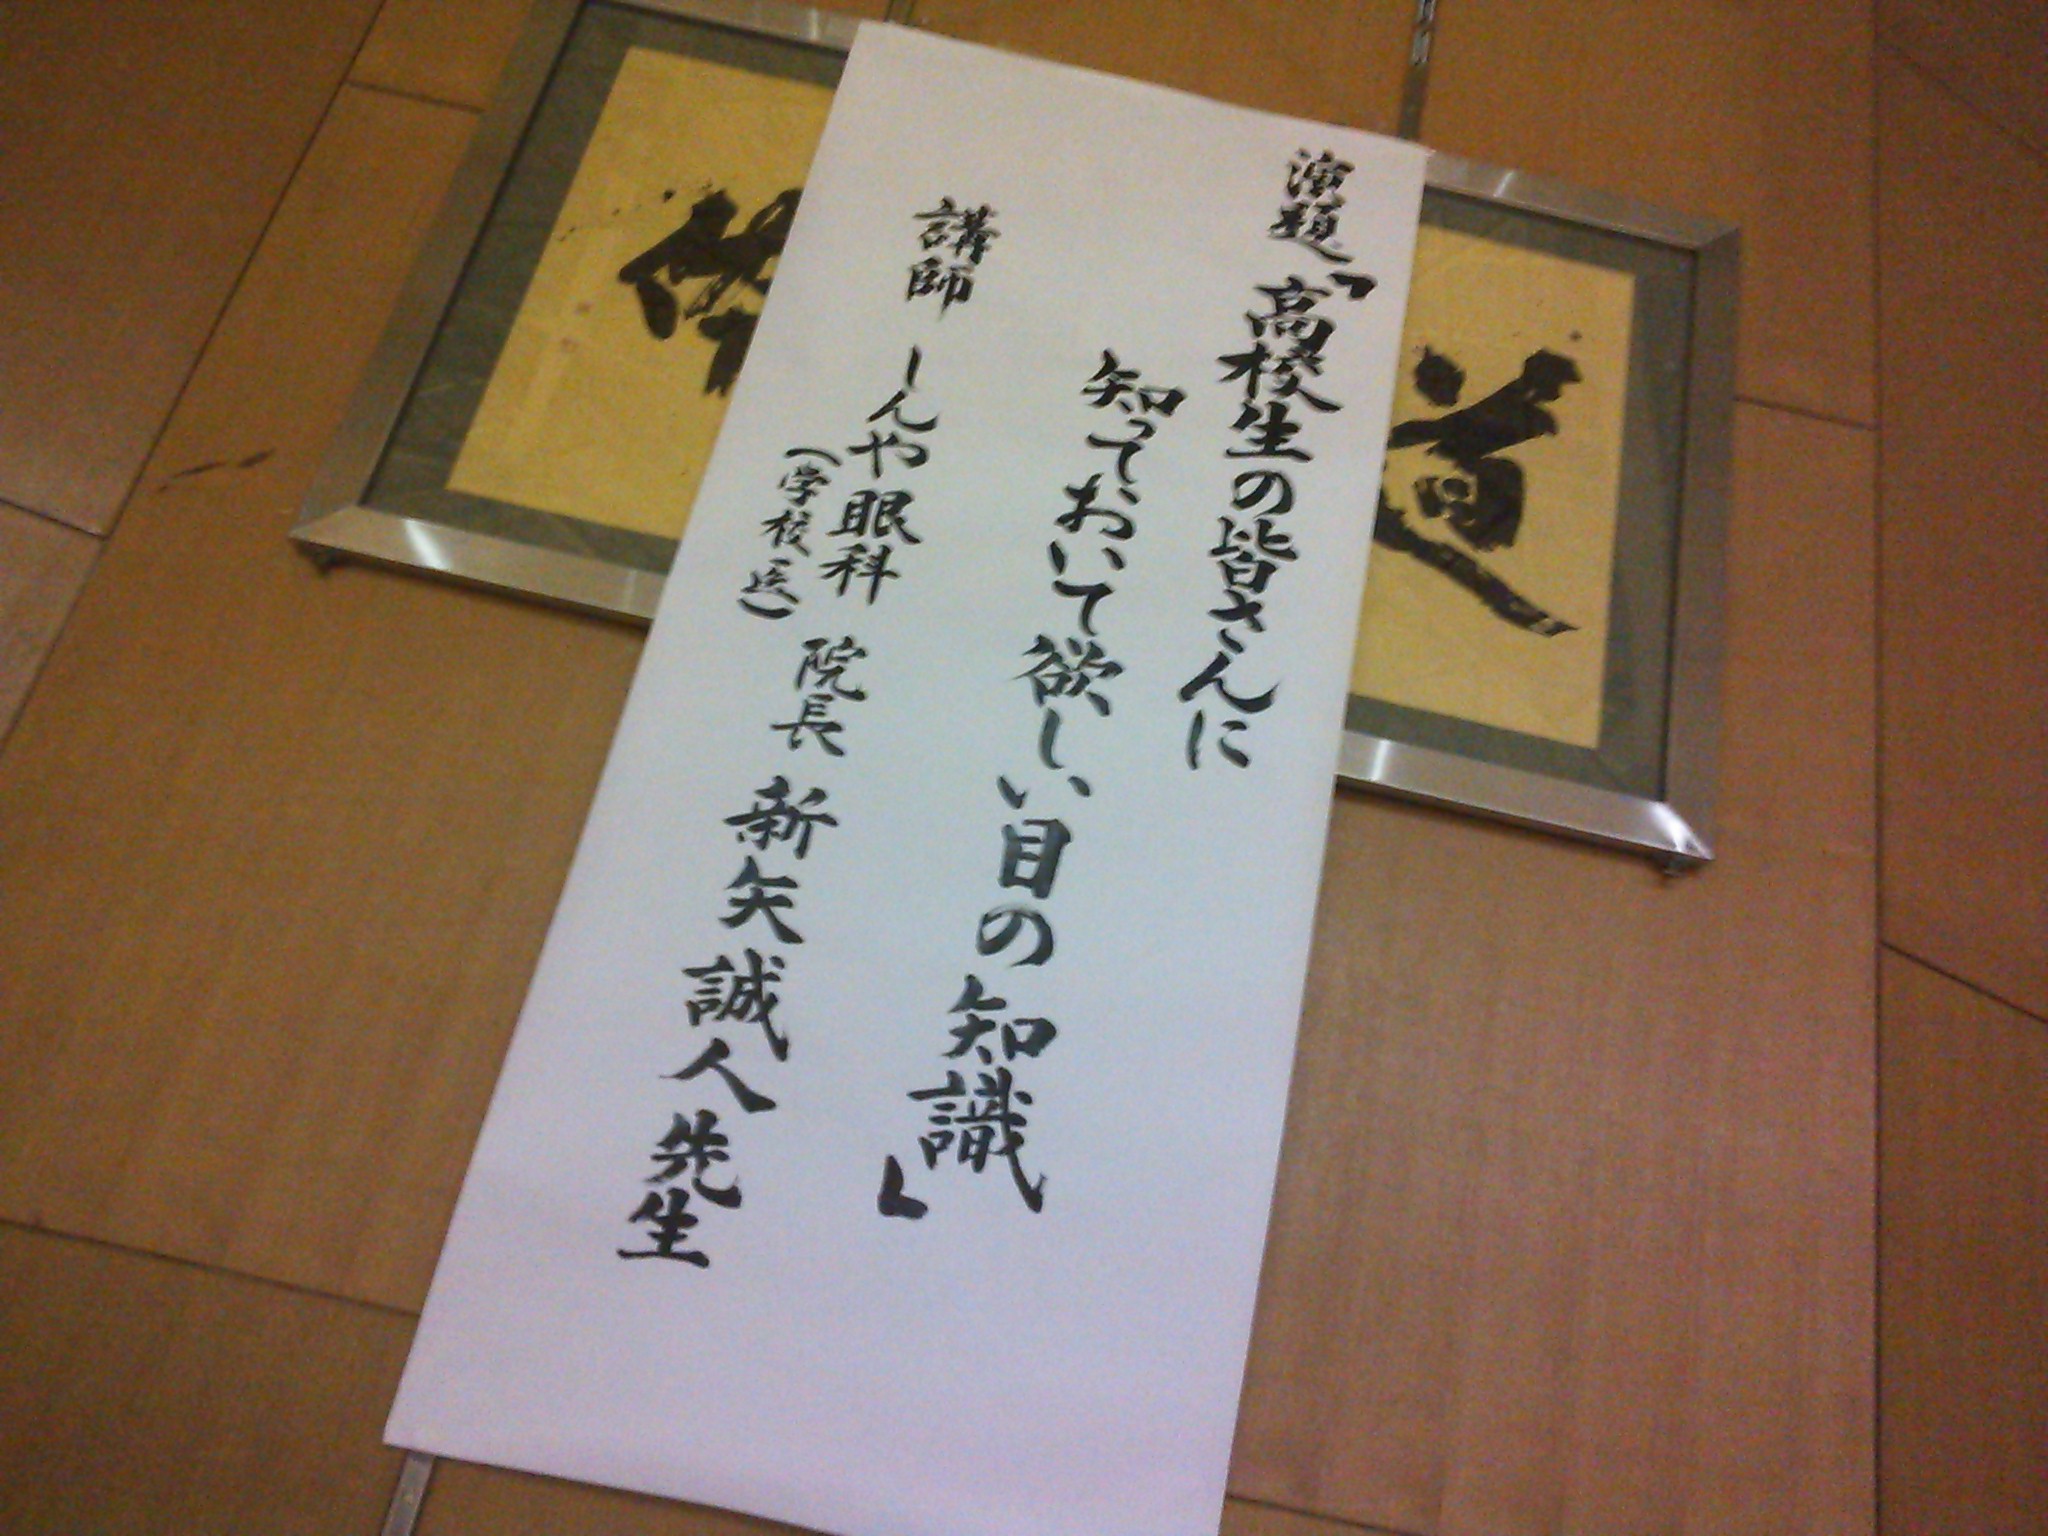 演題「高校生の皆さんに
知っておいて欲しい目の知識」
講師 しんや眼科 院長 新矢誠人先生
(学校医)
道